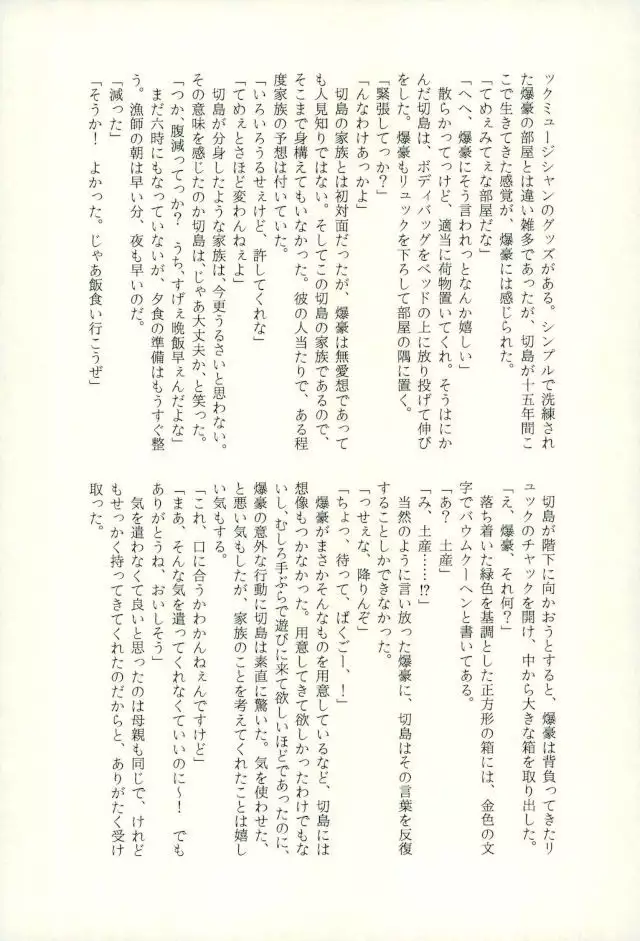 ックミュージシャンのグッズがある。シンプルで洗練され
た爆豪の部屋とは違い雑多であったが、切島が十五年間こ
こで生きてきた感覚が、爆豪には感じられた。
「てめぇみてぇな部屋だな」
「へへ、爆豪にそう言われっとなんか嬉しい」
　散らかってっけど、適当に荷物置いてくれ。そうはにか
んだ切島は、ボディバッグをベッドの上に放り投げて伸び
をした。爆豪もリュックを下ろして部屋の隅に置く。
「緊張してっか？」
「んなわけあっかよ」
　切島の家族とは初対面だったが、爆豪は無愛想であって
も人見知りではない。そしてこの切島の家族であるので、
そこまで身構えてもいなかった。彼の人当たりで、ある程
度家族の予想は付いていた。
「いろいろうるせぇけど、許してくれな」
「てめぇとさほど変わんねぇよ」
　切島が分身したような家族は、今更うるさいと思わない。
その意味を感じたのか切島は、じゃあ大丈夫か、と笑った。
「つか、腹減ってっか？　うち、すげぇ晩飯早ぇんだよな」
　まだ六時にもなっていないが、夕食の準備はもうすぐ整
う。漁師の朝は早い分、夜も早いのだ。
「減った」
「そうか！　よかった。じゃあ飯食い行こうぜ」
　切島が階下に向かおうとすると、爆豪は背負ってきたリ
ュックのチャックを開け、中から大きな箱を取り出した。
「え、爆豪、それ何？」
　落ち着いた緑色を基調とした正方形の箱には、金色の文
字でバウムクーヘンと書いてある。
「あ？　土産」
「み、土産……⁉」
　当然のように言い放った爆豪に、切島はその言葉を反復
することしかできなかった。
「っせぇな、降りんぞ」
「ちょっ、待って、ばくごー、！」
　爆豪がまさかそんなものを用意しているなど、切島には
想像もつかなかった。用意してきて欲しかったわけでもな
いし、むしろ手ぶらで遊びに来て欲しいほどであったのに、
爆豪の意外な行動に切島は素直に驚いた。気を使わせた、
と悪い気もしたが、家族のことを考えてくれたことは嬉し
い気もする。
「これ、口に合うかわかんねぇんですけど」
「まあ、そんな気を遣ってくれなくていいのに〜！　でも
ありがとうね、おいしそう」
　気を遣わなくて良いと思ったのは母親も同じで、けれど
もせっかく持ってきてくれたのだからと、ありがたく受け
取った。